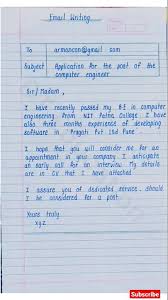 Email Writing
To armancon@gmail com
Subject Application for the post of the
computer engineer
Sir/Madam,
I have recently passed my B.E in computer
engineering from NIT Patna College I have
also three months experience of developing
software in "Pragati Pvt Ltd Pune
I hope that you will consider me for an
appointment in your company I anticipate
an early call for an interview My details are
in CV that I have attached
I assure you of dedicated service should
I be considered for a post
Yours truly
xyz
Subscribe